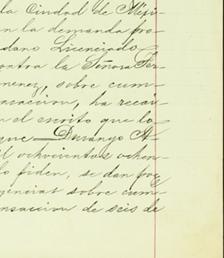 la Ciudad de Méji-
n la demanda pro-
dano Licenciado
contra la Señora Fer-
menez, sobre cum-
nsacion, ha recai-
n el escrito que lo
que — Durango A-
il ochocientos ochen-
lo piden, se dan por
genciat sobre cum-
nsacion de seis de